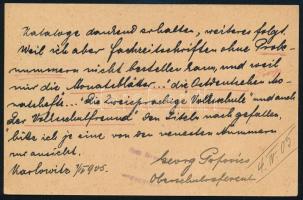 Kataloge dankend erhalten, weiteres folgt.
Weil ich aber Fachzeitschriften ohne Probe-
nummern nicht bestellen kann, und weil
mir die „Monatsblätter", „die Ostdeutschen Mo-
natshefte", „Die Zweisprachige Volksschule" und auch
„Der Volksschulfreund" den Titeln nach gefallen,
bitte ich je eine von den neuesten Nummern
zur Ansicht.
Karlowitz 1/IV 905.
Georg Popovics
Oberschulreferent
4 IV 05